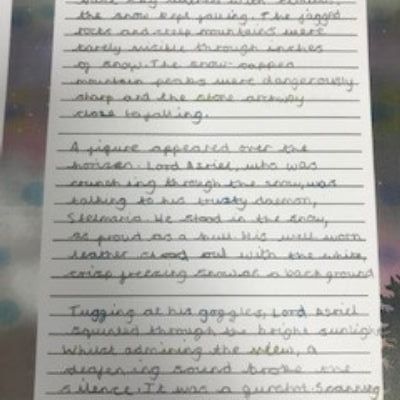 the snow kept falling. The jagged
rocks and steep mountains were
barely visible through inches
of snow. The snow-capped
mountain peaks were dangerously
sharp and the stone archway
close to falling.
A figure appeared over the
horizon. Lord Asriel, who was
crunching through the snow, was
talking to his trusty daemon,
Stelmaria. He stood in the snow,
as proud as a bull. His well worn
leather stood out with the white,
crisp freezing snow as a background
Tugging at his goggles, Lord Asriel
squinted through the bright sunlight
Whilst admiring the view, a
deafening sound broke the
silence. It was a gunshot. Scanning